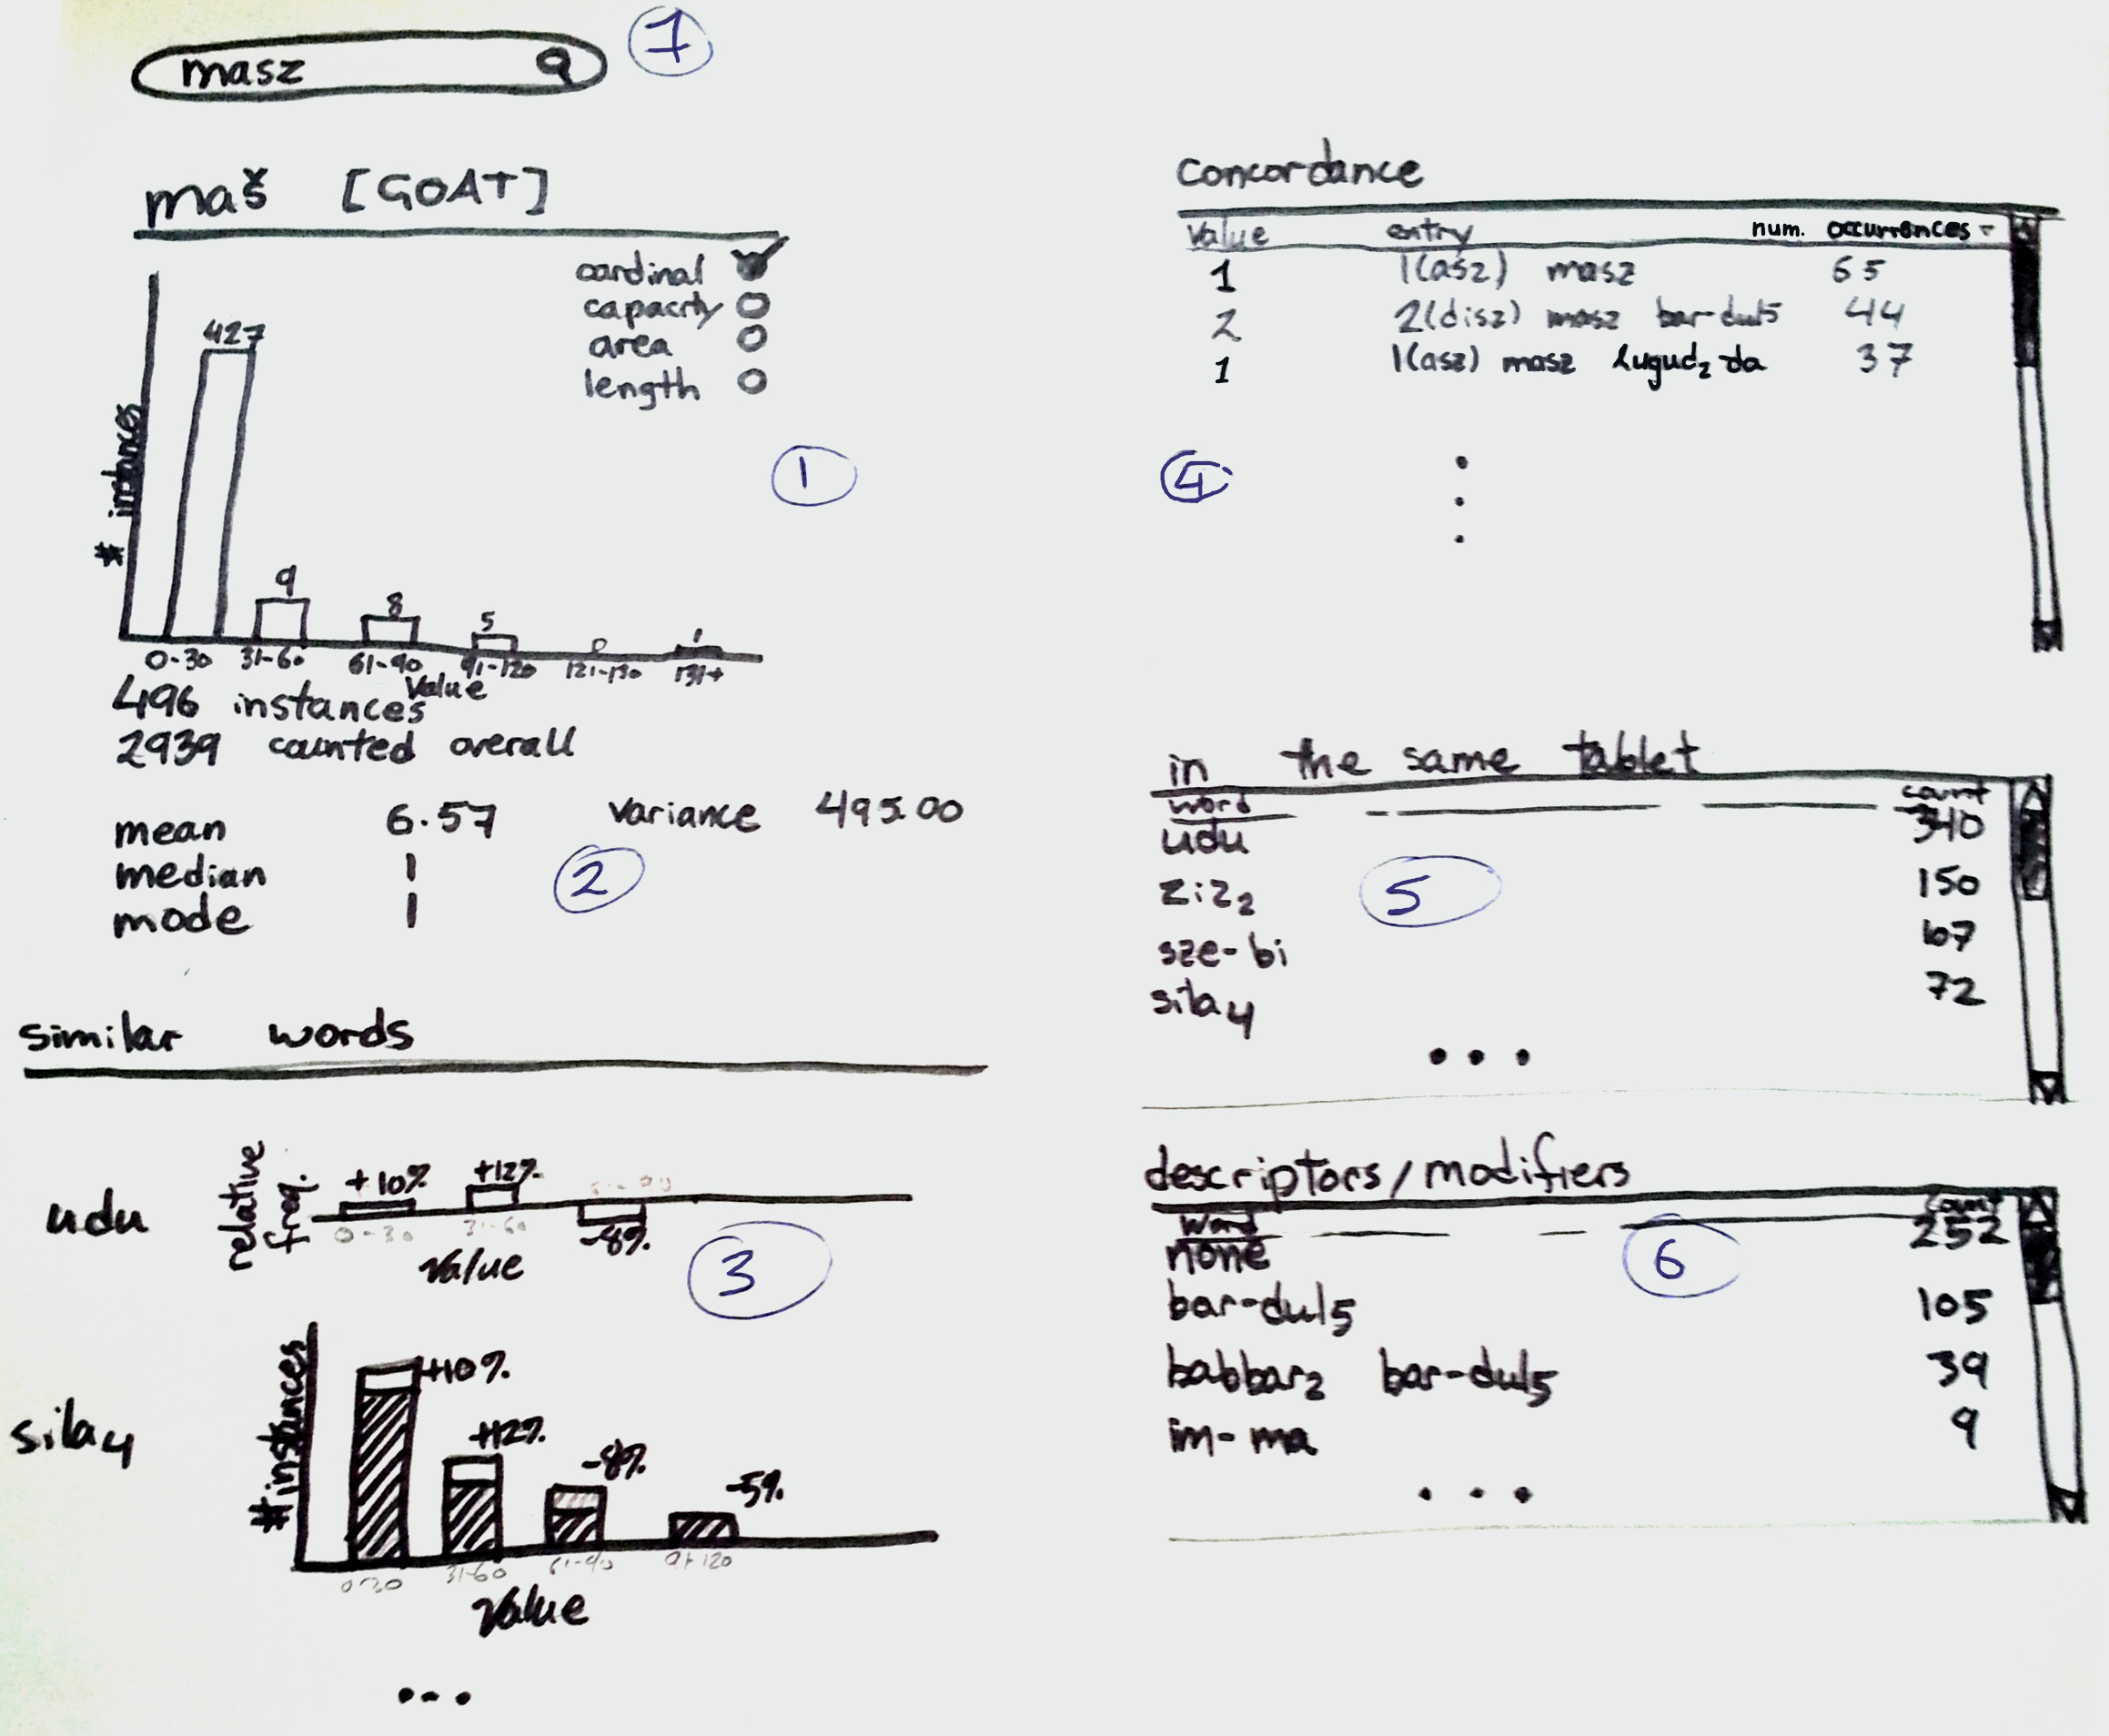 masz
7
maš [GOAT]
cardinal
capacity
area
length
# instances
427
9
8
5
0
1
0-30 31-60 61-90 91-120 121-130 131+
Value
1
496 instances
2939 counted overall
mean 6.57 variance 495.00
median 1
mode 1
2
similar words
udu
relative freq.
+10% +12% -8%
0-30 31-60
Value
3
sila4
# instances
+10%
+12%
-8%
-5%
31-60 61-90 91-120
Value
...
Concordance
Value entry num. occurrences
1 1(asz) masz 65
2 2(disz) masz bar-dul5 44
1 1(asz) masz lugud2 da 37
4
in the same tablet
word count
udu 340
ziz2 150
sze-bi 107
sila4 72
5
...
descriptors/modifiers
word count
none 252
bar-dul5 105
babbar2 bar-dul5 39
im-ma 9
6
...